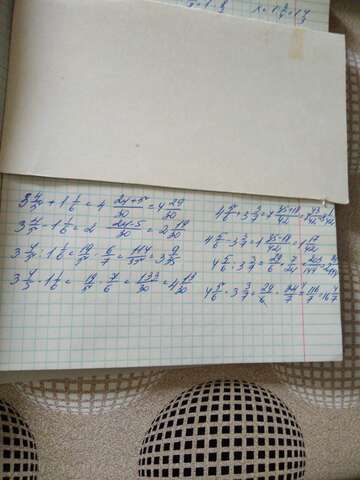 3 4/5 + 1 1/6 = 4 24+5/30 = 4 29/30
3 4/5 - 1 1/6 = 2 24-5/30 = 2 19/30
3 4/5 : 1 1/6 = 19/5 · 6/7 = 114/35 = 3 9/35
3 4/5 · 1 1/6 = 19/5 · 7/6 = 133/30 = 4 13/30
4 5/6 + 3 3/7 = 7 35+18/42 =
4 5/6 - 3 3/7 = 1 35-18/42 = 1 17/42
4 5/6 : 3 3/7 = 29/6 · 7/24 = 203/144
4 5/6 · 3 3/7 = 29/6 · 24/7 = 116/7 = 16 4/7